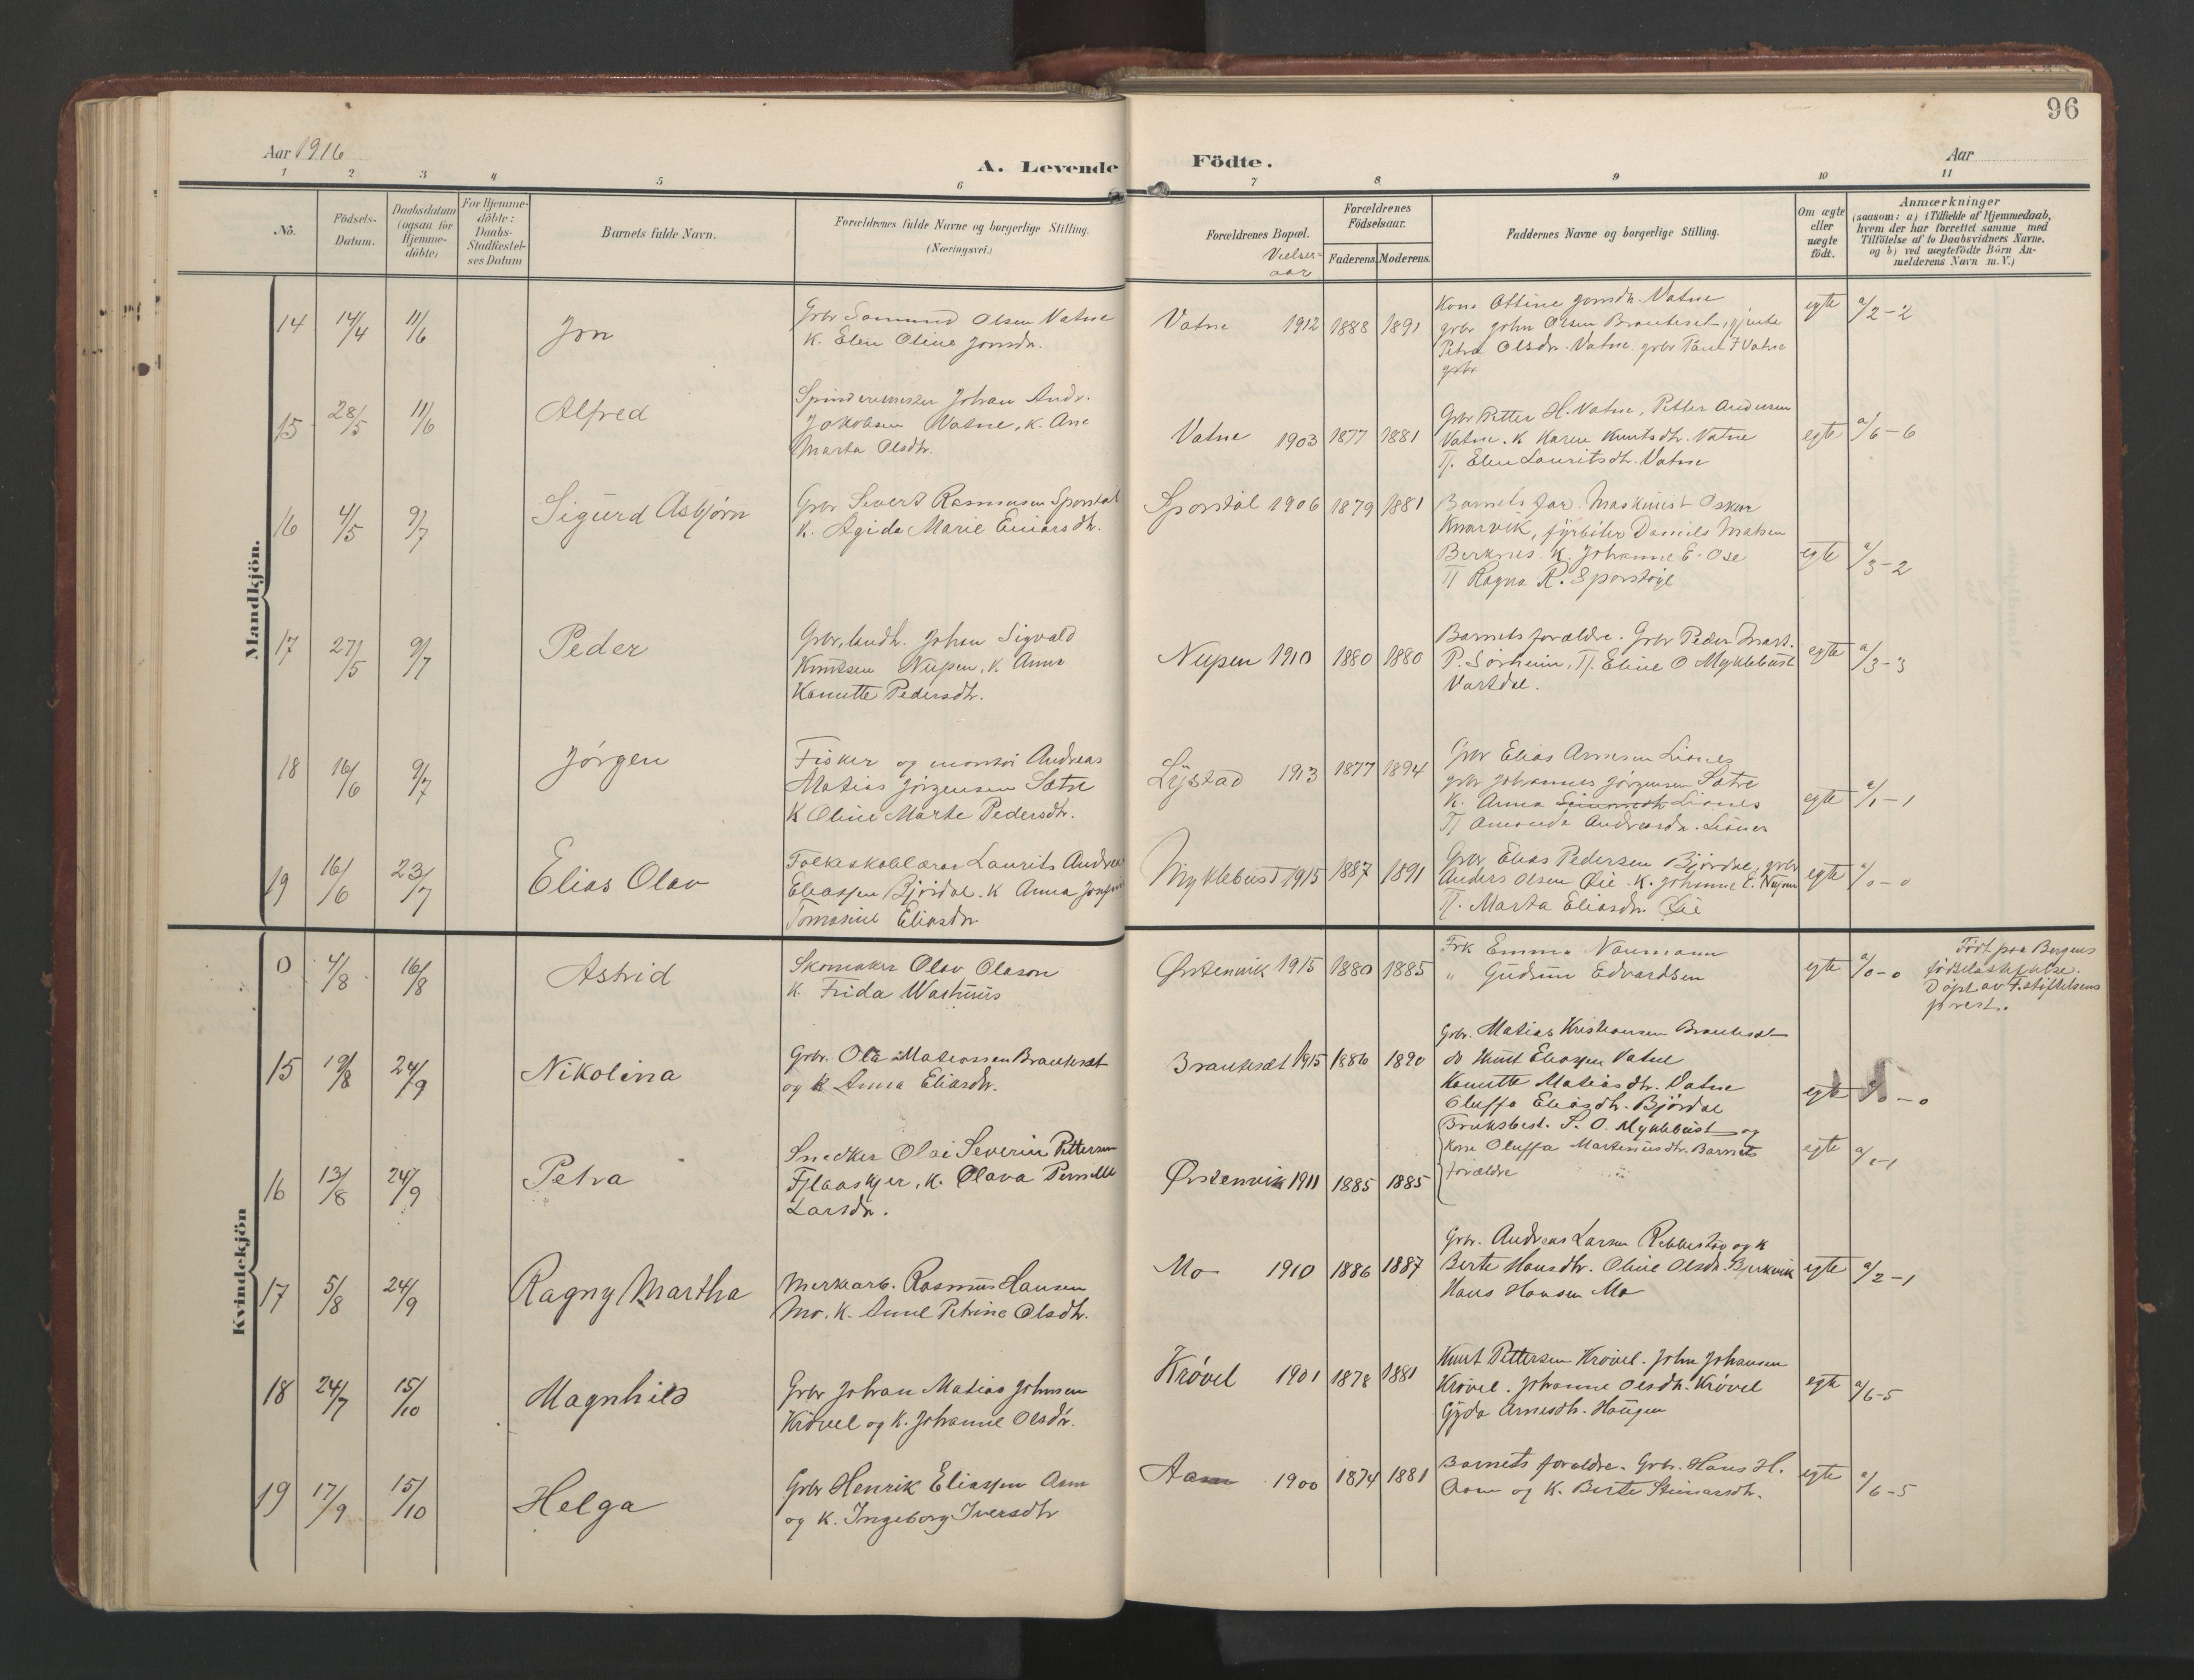 96
Aar 1916
A. Levende Födte.
Aar
1 2 3 4 5 6 7 8 9 10 11
No.
Födsels-
Datum.
Daabsdatum
(ogsaa for
Hjemme-
döbte)
For Hjemme-
döbte:
Daabs-
Stadfæstel-
ses Datum
Barnets fulde Navn.
Forældrenes fulde Navne og borgerlige Stilling.
(Næringsvei.)
Forældrenes Bopæl.
Vielses-
aar
Forældrenes
Födselsaar.
Faderens. Moderens.
Faddernes Navne og borgerlige Stilling.
Om ægte
eller
uægte
födt.
Anmærkninger
(saasom: a) i Tilfælde af Hjemmedaab,
hvem der har forrettet samme med
Tilföielse af to Daabsvidners Navne.
og b) ved uægtefödte Börn An-
melderens Navn m. V.)
Mandkjön.
14 14/4 11/6 Jon
Grbr Olsen Vatne
K. Elen Oline Jonsdr.
Vatne 1912 1888 1891
Kone Ottine Jonsdr. Vatne
grbr John Olsen Brauteset, gjente
Petra Olsdr. Vatne. grbr Paul Vatne
grbr
egte a/2-2
15 28/5 11/6 Alfred
Spinderimester Johan Andr.
Jakobsen Vatne, K. Ane
Marta Olsdtr.
Vatne 1903 1877 1881
Grbr Petter H. Vatne, Petter Andersen
Vatne. K Karen Knutsdtr. Vatne
Pj. Elen Lauritsdtr. Vatne
egte a/6-6
16 4/5 9/7 Sigurd Asbjørn
Grbr Sivert Rasmusen Sporstøl
K. Agide Marie Einarsdtr.
Sporstøl 1906 1879 1881
Barnets far. Maskinist Oskar
Knarvik, fyrbøter Daniels Matsen
K. Johanne E. Ose
Pj Ragna R. Sporstøyl
egte a/3-2
17 27/5 9/7 Peder
Grbr, landh. Johan Sigvald
Knutsen Nupen, K. Anna
Kanutte Pedersdtr.
Nupen 1910 1880 1880
Barnets forældre. Grbr Peder Mart.
P. Sørheim, Pj. Eline O Myklebust
Vartdal.
egte a/3-3
18 16/6 9/7 Jørgen
Fisker og montør Andreas
Matias Jørgensen Sætre
K Oline Marte Pedersdtr.
Lystad 1913 1877 1894
Grbr Elias Arnesen Lianes
grbr Johannes Jørgensen Sætre
K. Anna Lianes
Pj Amanda Andreasdr. Lianes
egte a/1-1
19 16/6 23/7 Elias Olav
Folkeskolelærar Laurits Andreas
Eliassen Bjørdal. K Anna
Tomasine Eliasdr.
Myklebust 1915 1887 1891
Grbr Elias Pedersen Bjørdal, grbr
Anders Olsen Øie. K. Johanne E. Nupen
Pj. Marta Eliasdr. Øie
egte a/0-0
Kvindekjön
0 4/8 16/8 Astrid
Skomaker Olav Olason
K. Frida
Ørstenvik 1915 1880 1885
Frk Emma Naumann
" Gudrun Edvardsen
egte a/0-0
Født paa Bergens
fødselsstiftelse.
Døpt av F.stiftelsens
prest.
15 19/8 24/9 Nikolina
Grbr. Ola Matiassen Brauteset
og K Anna Eliasdtr.
Brauteset 1915 1886 1890
Grbr. Matias Kristiansen Brauteset
do Knut Eliassen Vatne
Kanutte Matiasdtr. Vatne
Oluffa Eliasdtr. Bjørdal
egte a/0-0
16 13/8 24/9 Petra
Snedker Olai Severin Pettersen
Flaaskjer, K. Olava Pernille
Larsdr.
Ørstenvik 1911 1885 1885
Bruksbest. P. O. Myklebust og
Kone Oluffa Martinusdtr. Barnets
forældre
egte a/1-1
17 5/8 24/9 Ragny Martha
Merkarb. Rasmus Hansen
Mo. K. Anne Petrine Olsdtr.
Mo 1910 1886 1887
Grbr. Andreas Larsen Rebbestad og K
Berte Hansdtr. Oline Olsdr. Bjerkvik
Hans Hansen Mo
egte a/2-1
18 24/7 15/10 Magnhild
Grbr Johan Matias Johnsen
Krøvel og K. Johanne Olsdtr.
Krøvel 1901 1878 1881
Knut Pettersen Krøvel. John Johansen
Krøvel. Johanne Olsdtr. Krøvel
Gyda Arnesdtr. Haugen
egte a/6-5
19 17/9 15/10 Helga
Grbr Henrik Eliassen Aam
og K. Ingeborg Iversdtr
Aam 1900 1874 1881
Barnets forældre. Grbr. Hans H.
Aam og K. Berte Steinarsdtr.
egte a/6-5